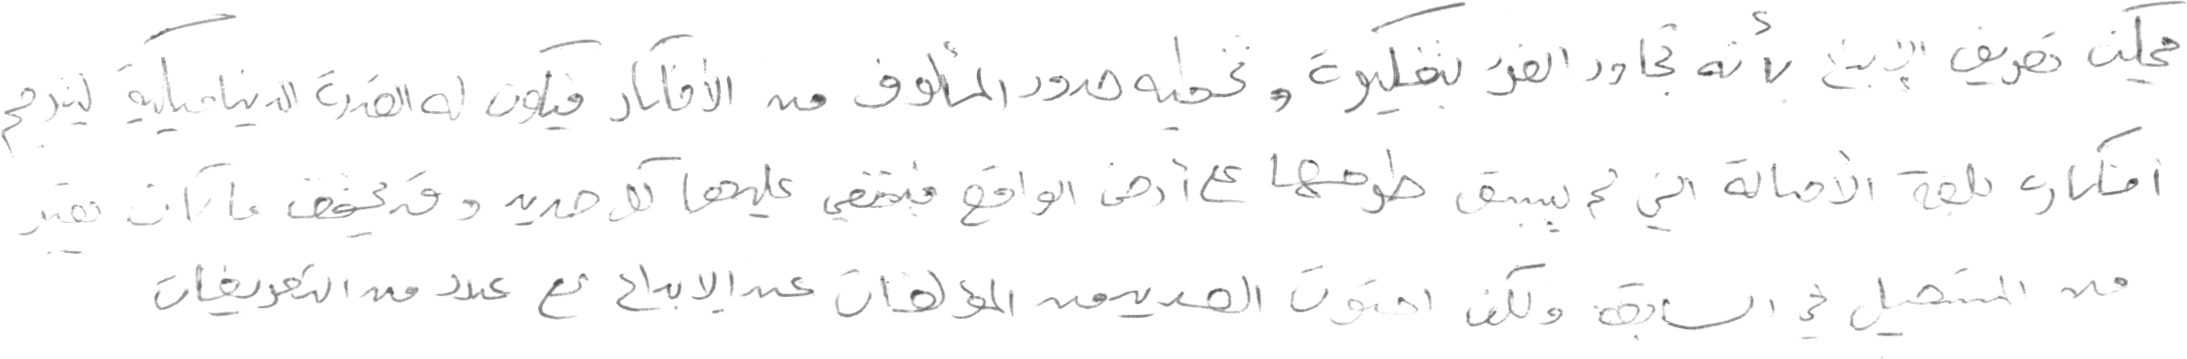 يمكن تعريف الإبداع بأنه تجاوز الفرد بتفكيره وتخطيه حدود المألوف من الأفكار فيكون له القدرة الديناميكية ليترجم
أفكاره بلغة الأصالة التي لم يسبق طرحها على أرض الواقع فيضفي عليها كل جديد وقد يحقق ما كان يعتبر
من المستحيل في السابق ولكن احتوت العديد من المؤلفات عن الإبداع مع عدد من التعريفات